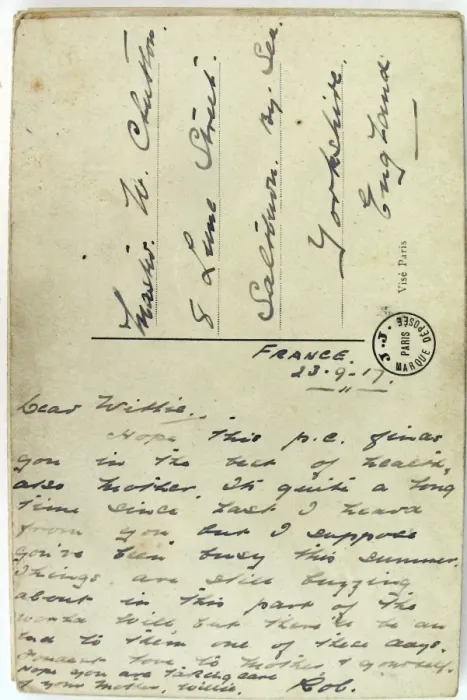 Master. W. Chutton.
8 Lune Street.
Saltburn. By. Sea.
Yorkshire.
England
Visé Paris
J.J.
PARIS
MARQUE DEPOSÉE
FRANCE.
23.9.17.
Dear Willie.
Hope this p.c. finds
you in the best of health,
also mother. It's quite a long
time since last I heard
from you but I suppose
you've been busy this summer.
Things are still buzzing
about in this part of the
world Will but there'll be an
end to them one of these days.
Fondest love to mother & yourself.
Hope you are taking care
of your mother, Willie.
Rob.